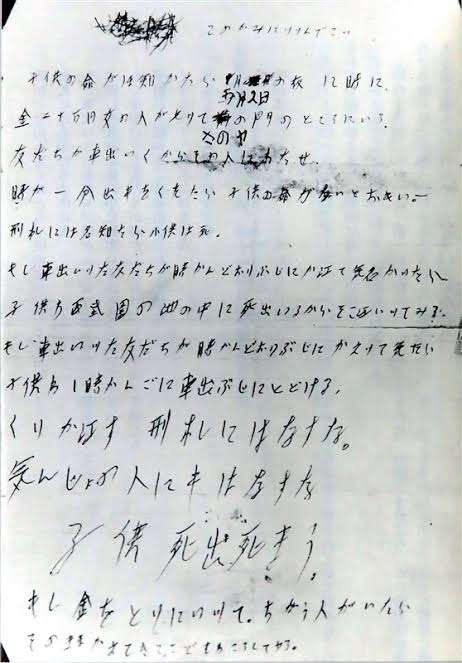 このかみにツツんでこい
子供の命がほ知かたら 五月2日の夜12時に、
金二十万円女の人がもツてさのヤの門のところにいろ。
友だちが車出いくからその人にわたせ。
時が一分出もをくれたら子供の命がないとおもい。
刑札には名知たら小供は死。
もし車出いツた友だちが時かんどおりぶじにか江て気名かツたら
子供わ西武園の池の中に死出いるからそこ江いツてみろ。
もし車出いツた友だちが時かんどおりぶじにかえツて気たら
子供わ1時かんごに車出ぶじにとどける、
くりか江す 刑札にはなすな。
気んじょの人にもはなすな
子供死出死まう。
もし金をとりにいツて、ちがう人がいたら
そのままかえてきてこどもわころしてヤる。